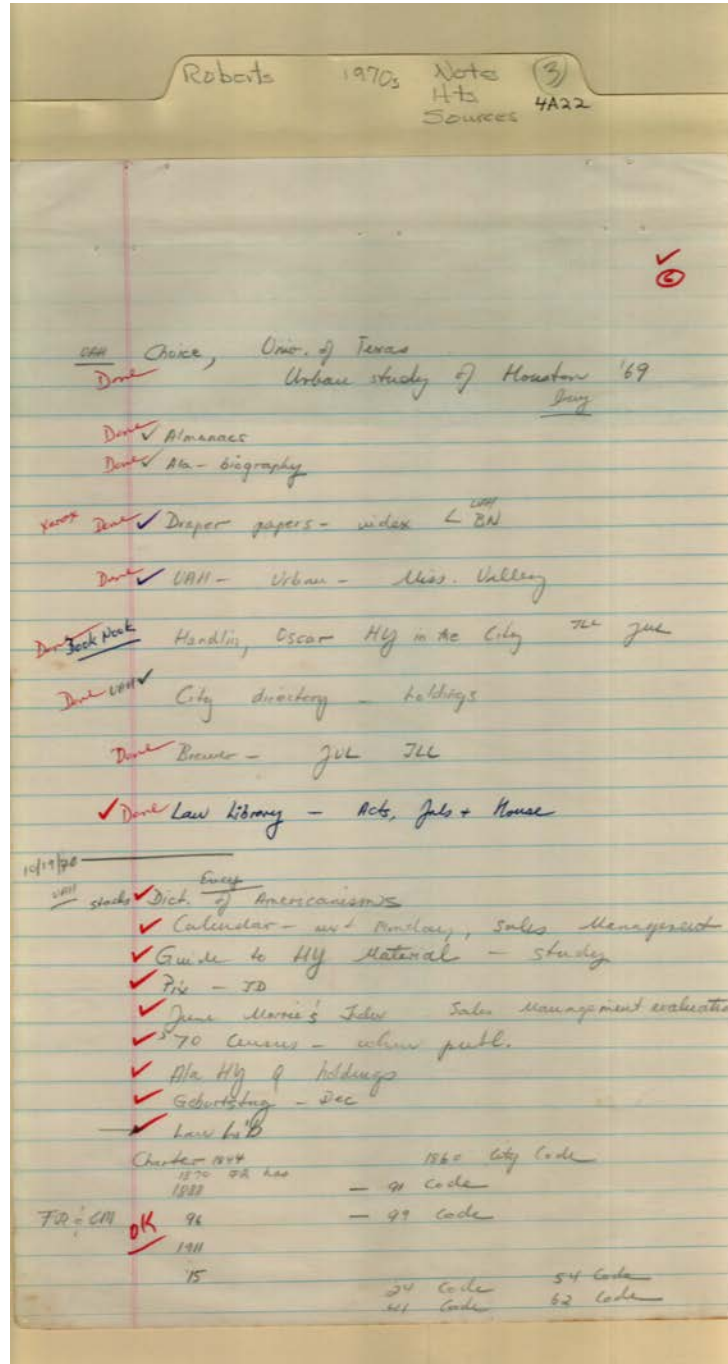 Roberts 1970s Note 3
Hts 4A22
Sources
6
UAH Choice, Univ. of Texas
Done Urban study of Houston '69
Done Almanacs
Done Ala - biography
Xerox Done Draper papers - index < UAH BN
Done UAH - Urban - Miss. Valley
Done Book Nook Handlin, Oscar HY in the City
Done UAH City directory - holdings
Done Brewer - JUL ILL
Done Law Library - Acts, Jnls + House
10/19/70
UAH stacks Dict. of Americanisms
Calendar - Monday, Sales Management
Guide to HY Material - study
Pix - JD
June Morrie's Index Sales Management evaluation
'70 Census - when publ.
Ala HY Q holdings
Geburtstag - Dec
Law Lib
Charter 1844 1860 City Code
1870 has
1888 - 91 Code
OK 96 - 99 Code
1911
'15
24 Code 54 Code
41 Code 62 Code